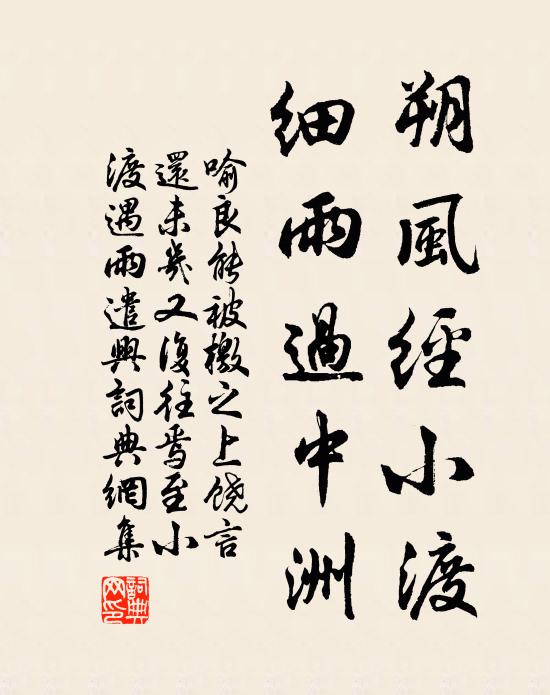 朔風經小渡
細雨過中洲
喻良能被檄之上饒言
還未幾又復往焉至小
渡遇雨遣興詞典網集
詞典
網印